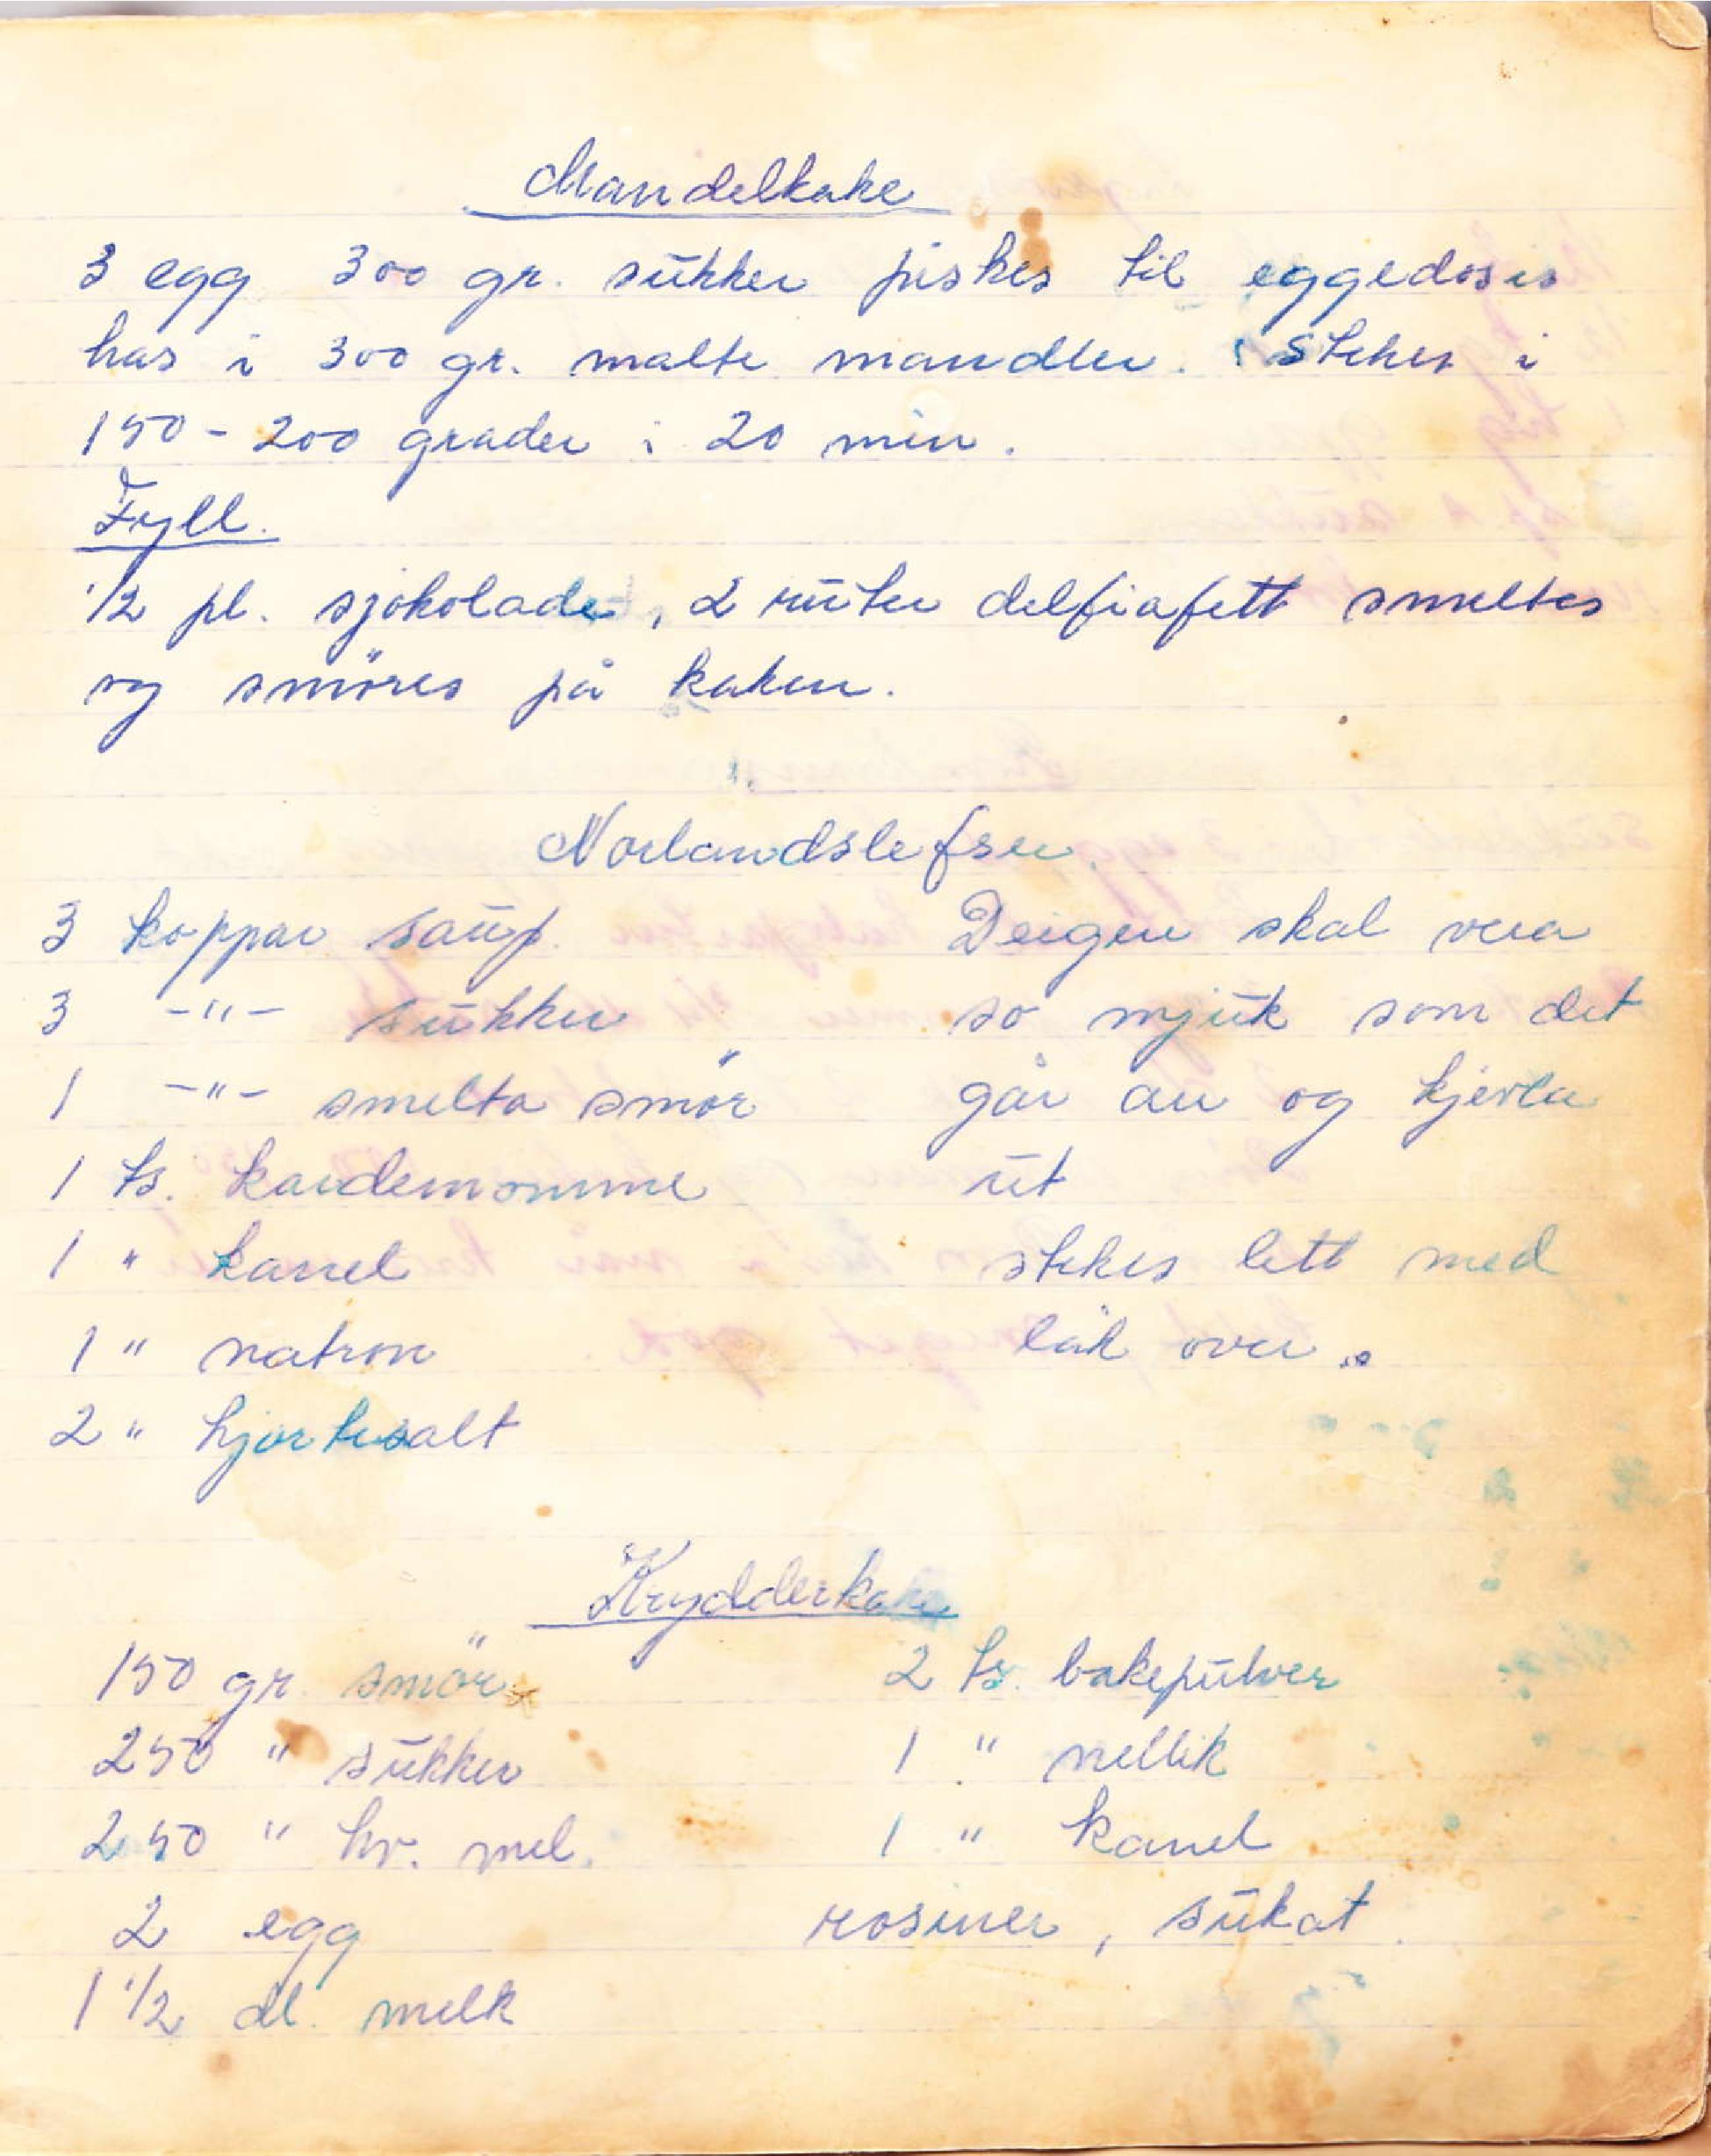 Mandelkake
3 egg 300 gr. sukker piskes til eggedosis
has i 300 gr. malte mandler. stekes i
150 - 200 grader i 20 min.
Fyll.
1/2 pl. sjokolade, 2 ruter delfiafett smeltes
og smöres på kaken.
Norlandslefser.
3 koppar saup.
3 -"- sukker
1 -"- smelta smör
1 ts. kardemomme
1 " kanel
1 " natron
2 " hjortesalt
Deigen skal vera
so mjuk som det
går an og kjevla
ut
stekes lett med
lok over.
Krydderkake
150 gr smör
250 " sukker
250 " hv. mel.
2 egg
1 1/2 dl. melk
2 ts. bakepulver
1 " nellik
1 " kanel
rosiner, sukat.